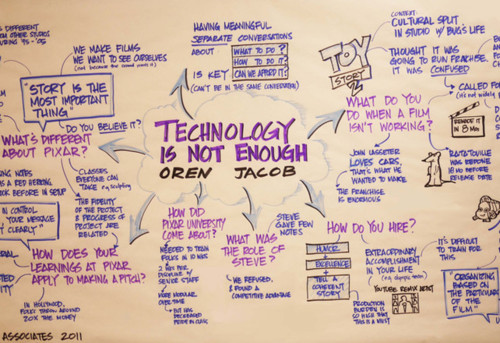 FROM OTHER STUDIOS
DURING '95-'05
WE MAKE FILMS
WE WANT TO SEE OURSELVES
"STORY IS THE
MOST IMPORTANT
THING"
DO YOU BELIEVE IT?
WHAT'S DIFFERENT
ABOUT PIXAR?
NOTES
IS A RED HERRING
BEFORE IN SETUP
CLASSES
EVERYONE CAN
TAKE e.g. sculpting
THE FIDELITY
OF THE PROJECT
& PROGRESS OF
PROJECT ARE
RELATED
IN CONTROL
YOUR MESSAGE
CLEARLY"
HOW DOES YOUR
LEARNINGS AT PIXAR
APPLY TO MAKING A PITCH?
IN HOLLYWOOD,
FOLKS THROW AROUND
20X THE MONEY
ASSOCIATES 2011
HAVING MEANINGFUL
SEPARATE CONVERSATIONS
ABOUT
WHAT TO DO?
HOW TO DO IT?
CAN WE AFFORD IT?
IS KEY
(CAN'T BE IN THE SAME CONVERSATION)
TECHNOLOGY
IS NOT ENOUGH
OREN JACOB
HOW DID
PIXAR UNIVERSITY
COME ABOUT?
NEEDED TO TRAIN
FOLKS IN 10 WKS
2 PER
DISCIPLINE
SENIOR STAFF
BUT HAS
DECREASED
STEVE
GAVE FEW
NOTES
WHAT WAS
THE ROLE OF
STEVE?
WE REFUSED,
& FOUND A
COMPETITIVE ADVANTAGE
CONTEXT:
CULTURAL SPLIT
IN STUDIO W/ BUG'S LIFE
TOY
STORY
2
THOUGHT IT WAS
GOING TO RUIN FRANCHISE
IT WAS CONFUSED
CALLED FOR
WHAT DO YOU
DO WHEN A FILM
ISN'T WORKING?
REMADE IT IN
8 MO
RATATOUILLE
WAS REDONE
BEFORE
RELEASE DATE
JOHN LASSETER
LOVES CARS,
THAT'S WHAT HE
WANTED TO MAKE.
THE FRANCHISE
IS ENORMOUS
HOW DO YOU HIRE?
HUMOR
+
EXCELLENCE
+
TELL A
COHERENT
STORY
EXTRAORDINARY
ACCOMPLISHMENT
IN YOUR LIFE
YOUTUBE REMIX ARTIST
PRODUCTION
BURDEN IS
SO HIGH THAT
THIS IS A MUST
IT'S DIFFICULT
TO TRAIN FOR
THIS
"ORGANIZING
BASED ON
THE PARTICULAR
OF THE
FILM"